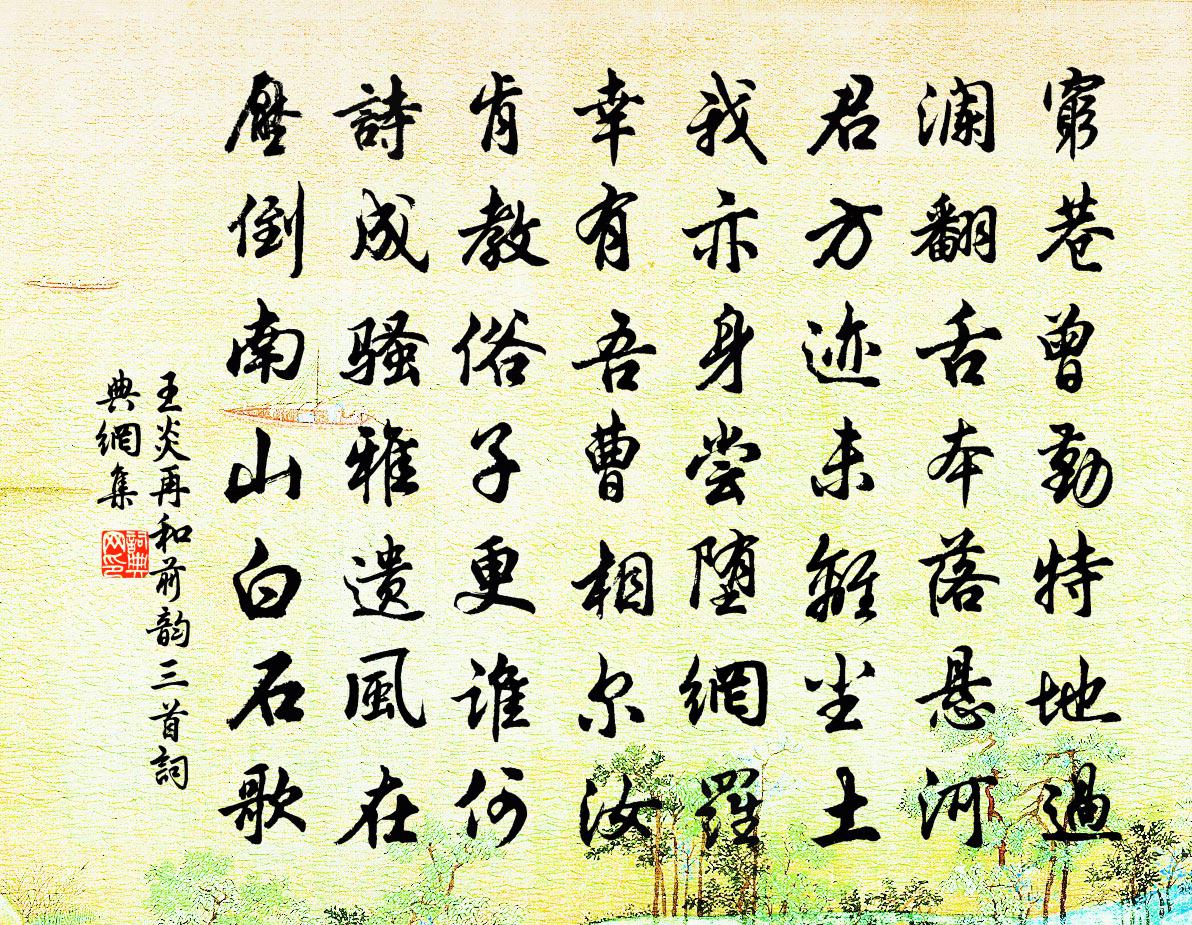 窮巷曾勤特地過
澜翻舌本落懸河
君方迹未離尘土
我亦身尝堕網羅
幸有吾曹相尔汝
肯教俗子更谁何
詩成騷雅遺風在
壓倒南山白石歌
王炎再和前韵三首詞
典網集
詞典
网印